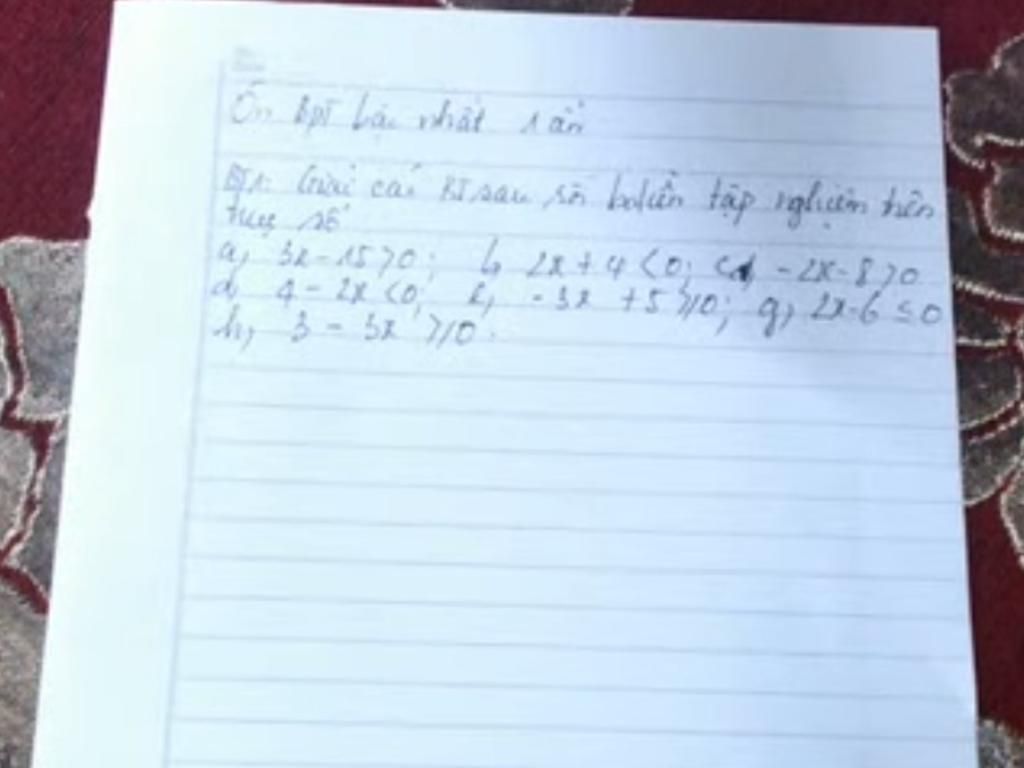 Ôn BPT bậc nhất 1 ẩn
BT1: Giải các BT sau rồi b diễn tập nghiệm trên
trục số
a, 3x - 15 > 0; b, 2x + 4 < 0; c, - 2x - 8 > 0
d, 4 - 2x < 0; e, - 3x + 5 ≥ 0; g, 2x - 6 ≤ 0
h, 3 - 3x ≥ 0.